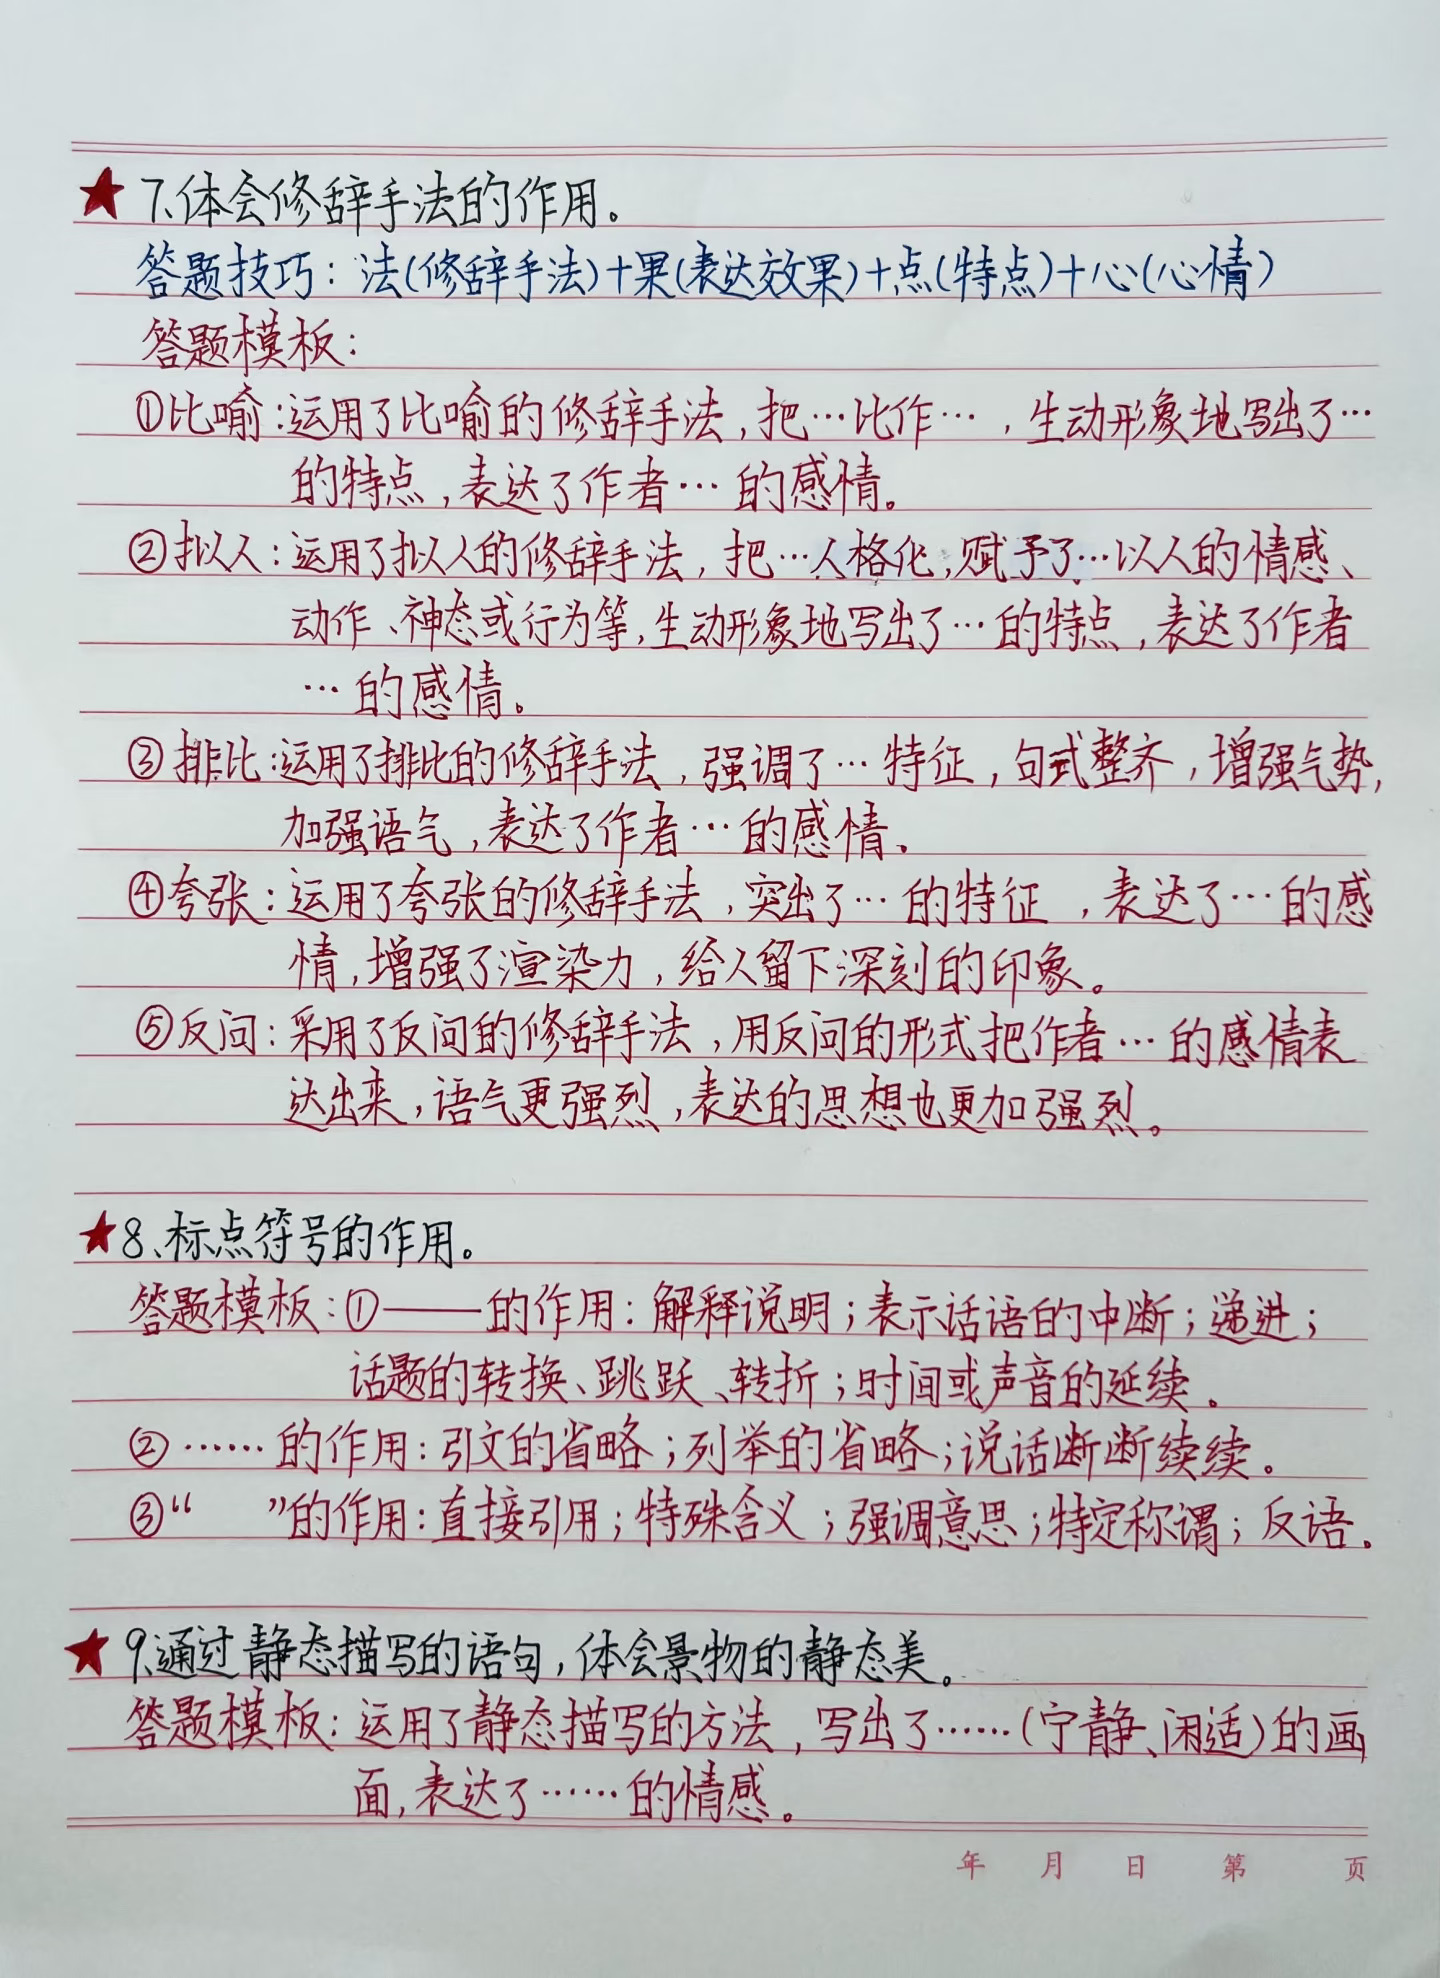 ★7、体会修辞手法的作用。
答题技巧：法(修辞手法)+果(表达效果)+点(特点)+心(心情)
答题模板：
①比喻：运用了比喻的修辞手法，把…比作…，生动形象地写出了…
的特点，表达了作者…的感情。
②拟人：运用了拟人的修辞手法，把…人格化，赋予了…以人的情感、
动作、神态或行为等，生动形象地写出了…的特点，表达了作者
…的感情。
③排比：运用了排比的修辞手法，强调了…特征，句式整齐，增强气势，
加强语气，表达了作者…的感情。
④夸张：运用了夸张的修辞手法，突出了…的特征，表达了…的感
情，增强了渲染力，给人留下深刻的印象。
⑤反问：采用了反问的修辞手法，用反问的形式把作者…的感情表
达出来，语气更强烈，表达的思想也更加强烈。
★8、标点符号的作用。
答题模板：①——的作用：解释说明；表示话语的中断；递进；
话题的转换、跳跃、转折；时间或声音的延续。
②……的作用：引文的省略；列举的省略；说话断断续续。
③“　”的作用：直接引用；特殊含义；强调意思；特定称谓；反语。
★9、通过静态描写的语句，体会景物的静态美。
答题模板：运用了静态描写的方法，写出了……(宁静、闲适)的画
面，表达了……的情感。
年 月 日 第 页